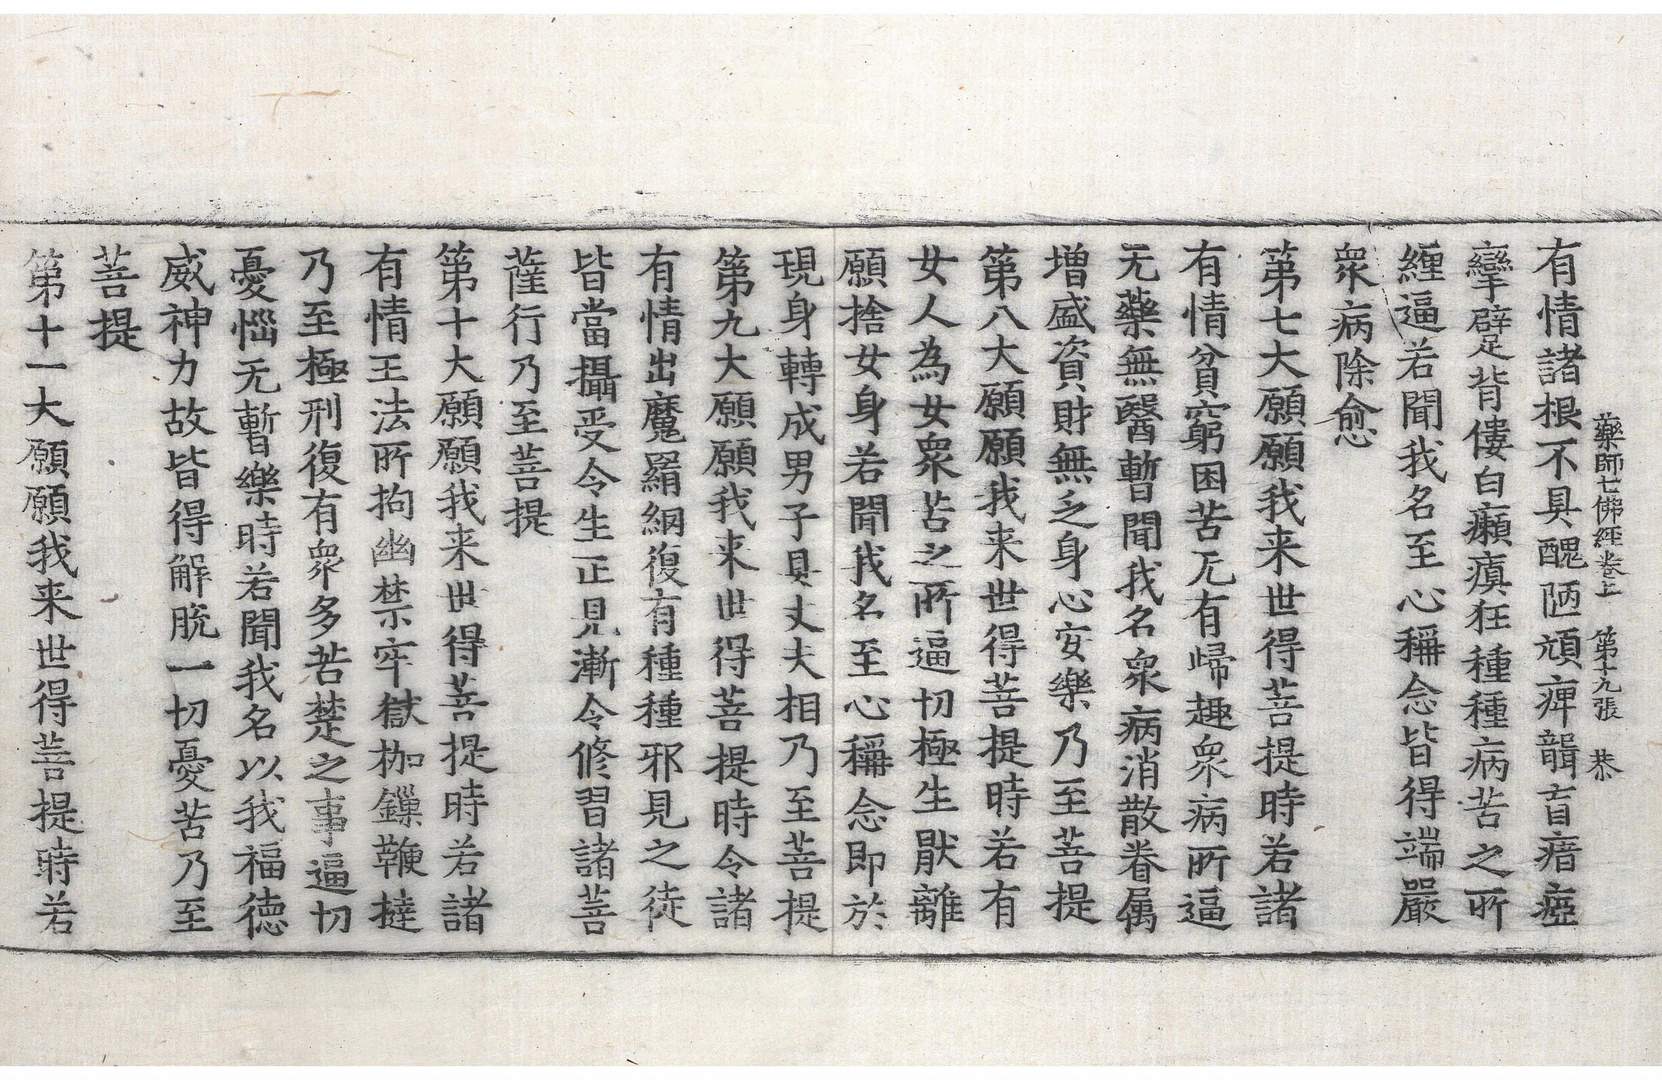 藥師七佛經卷上　第十九張　恭
有情諸根不具醜陋頑痺聾盲瘖瘂
攣躄背僂白癩癲狂種種病苦之所
纏逼若聞我名至心稱念皆得端嚴
衆病除愈
第七大願願我来世得菩提時若諸
有情貧窮困苦无有歸趣衆病所逼
无藥無醫暫聞我名衆病消散眷属
增盛資財無乏身心安樂乃至菩提
第八大願願我来世得菩提時若有
女人為女衆苦之所逼切極生厭離
願捨女身若聞我名至心稱念即於
現身轉成男子具丈夫相乃至菩提
第九大願願我来世得菩提時令諸
有情出魔羂網復有種種邪見之徒
皆當攝受令生正見漸令修習諸菩
薩行乃至菩提
第十大願願我来世得菩提時若諸
有情王法所拘幽禁牢獄枷鏁鞭撻
乃至極刑復有衆多苦楚之事逼切
憂惱无暫樂時若聞我名以我福德
威神力故皆得解脫一切憂苦乃至
菩提
第十一大願願我来世得菩提時若